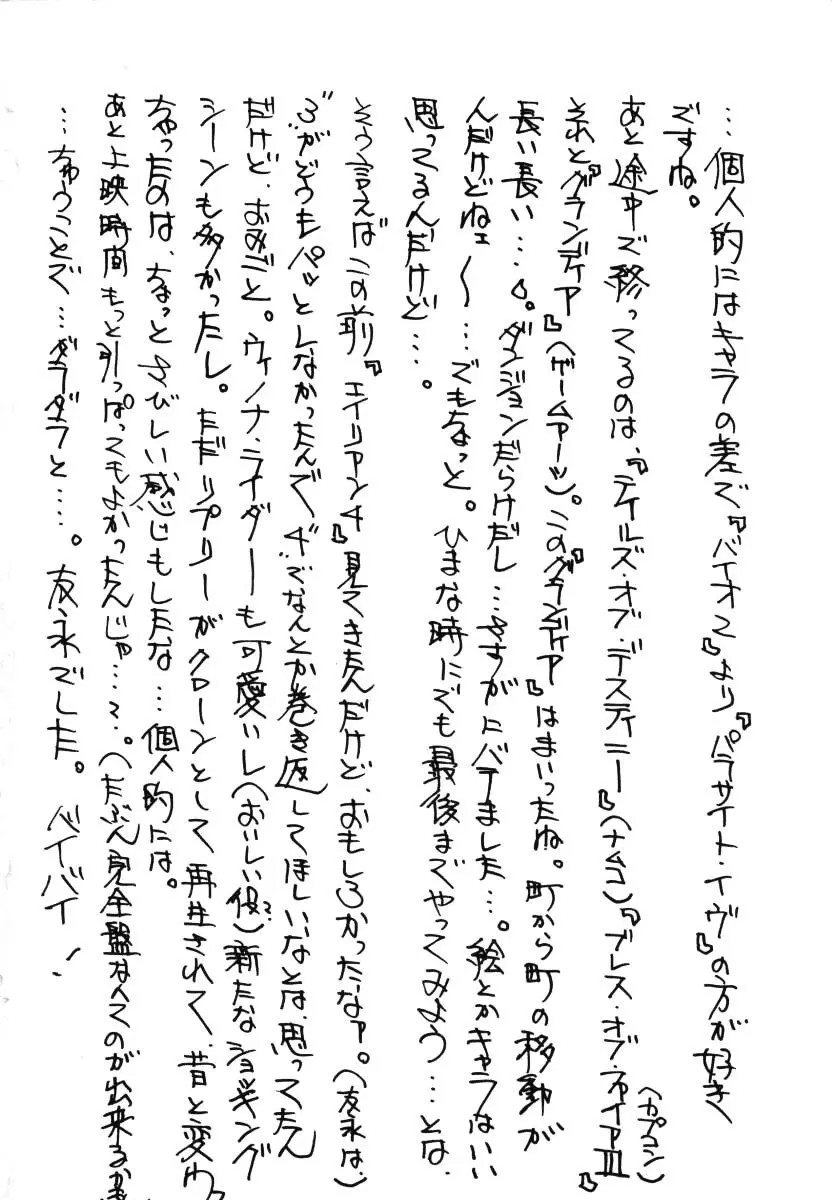 …個人的にはキャラの差で『バイオ2』より『パラサイト・イヴ』の方が好き
ですね。
あと途中で終ってるのは、『テイルズ・オブ・デスティニー』(ナムコ)『ブレス・オブ・ファイアⅢ』(カプコン)
それと『グランディア』(ゲームアーツ)。この『グランディア』はまいったね。町から町の移動が
長い長い…。ダンジョンだらけだし…さすがにバテました…。絵とかキャラないい
んだけどねェ〜…でもちょっと。ひまな時にでも最後までやってみよう…とは、
思ってるんだけど…。
そう言えばこの前『エイリアン4』見てきたんだけど、おもしろかったなァ。(友永は、)
"3"がどうもパッとしなかったんで、"4"でなんとか巻き返してほしいなとは、思ってたん
だけど、おみごと。ウィノナ・ライダーも可愛いし(おいしい役?)新たなショッキング
シーンも多かったし。ただリプリーがクローンとして再生されて、昔と変わ
ちゃったのは、ちょっとさびしい感じもしたな…個人的には。
あと上映時間もっと引っぱってもよかったんじゃ…?。(たぶん完全盤なんてのが出来るか
…ちゅうことで…ダラダラと…。友永でした。バイバイ!